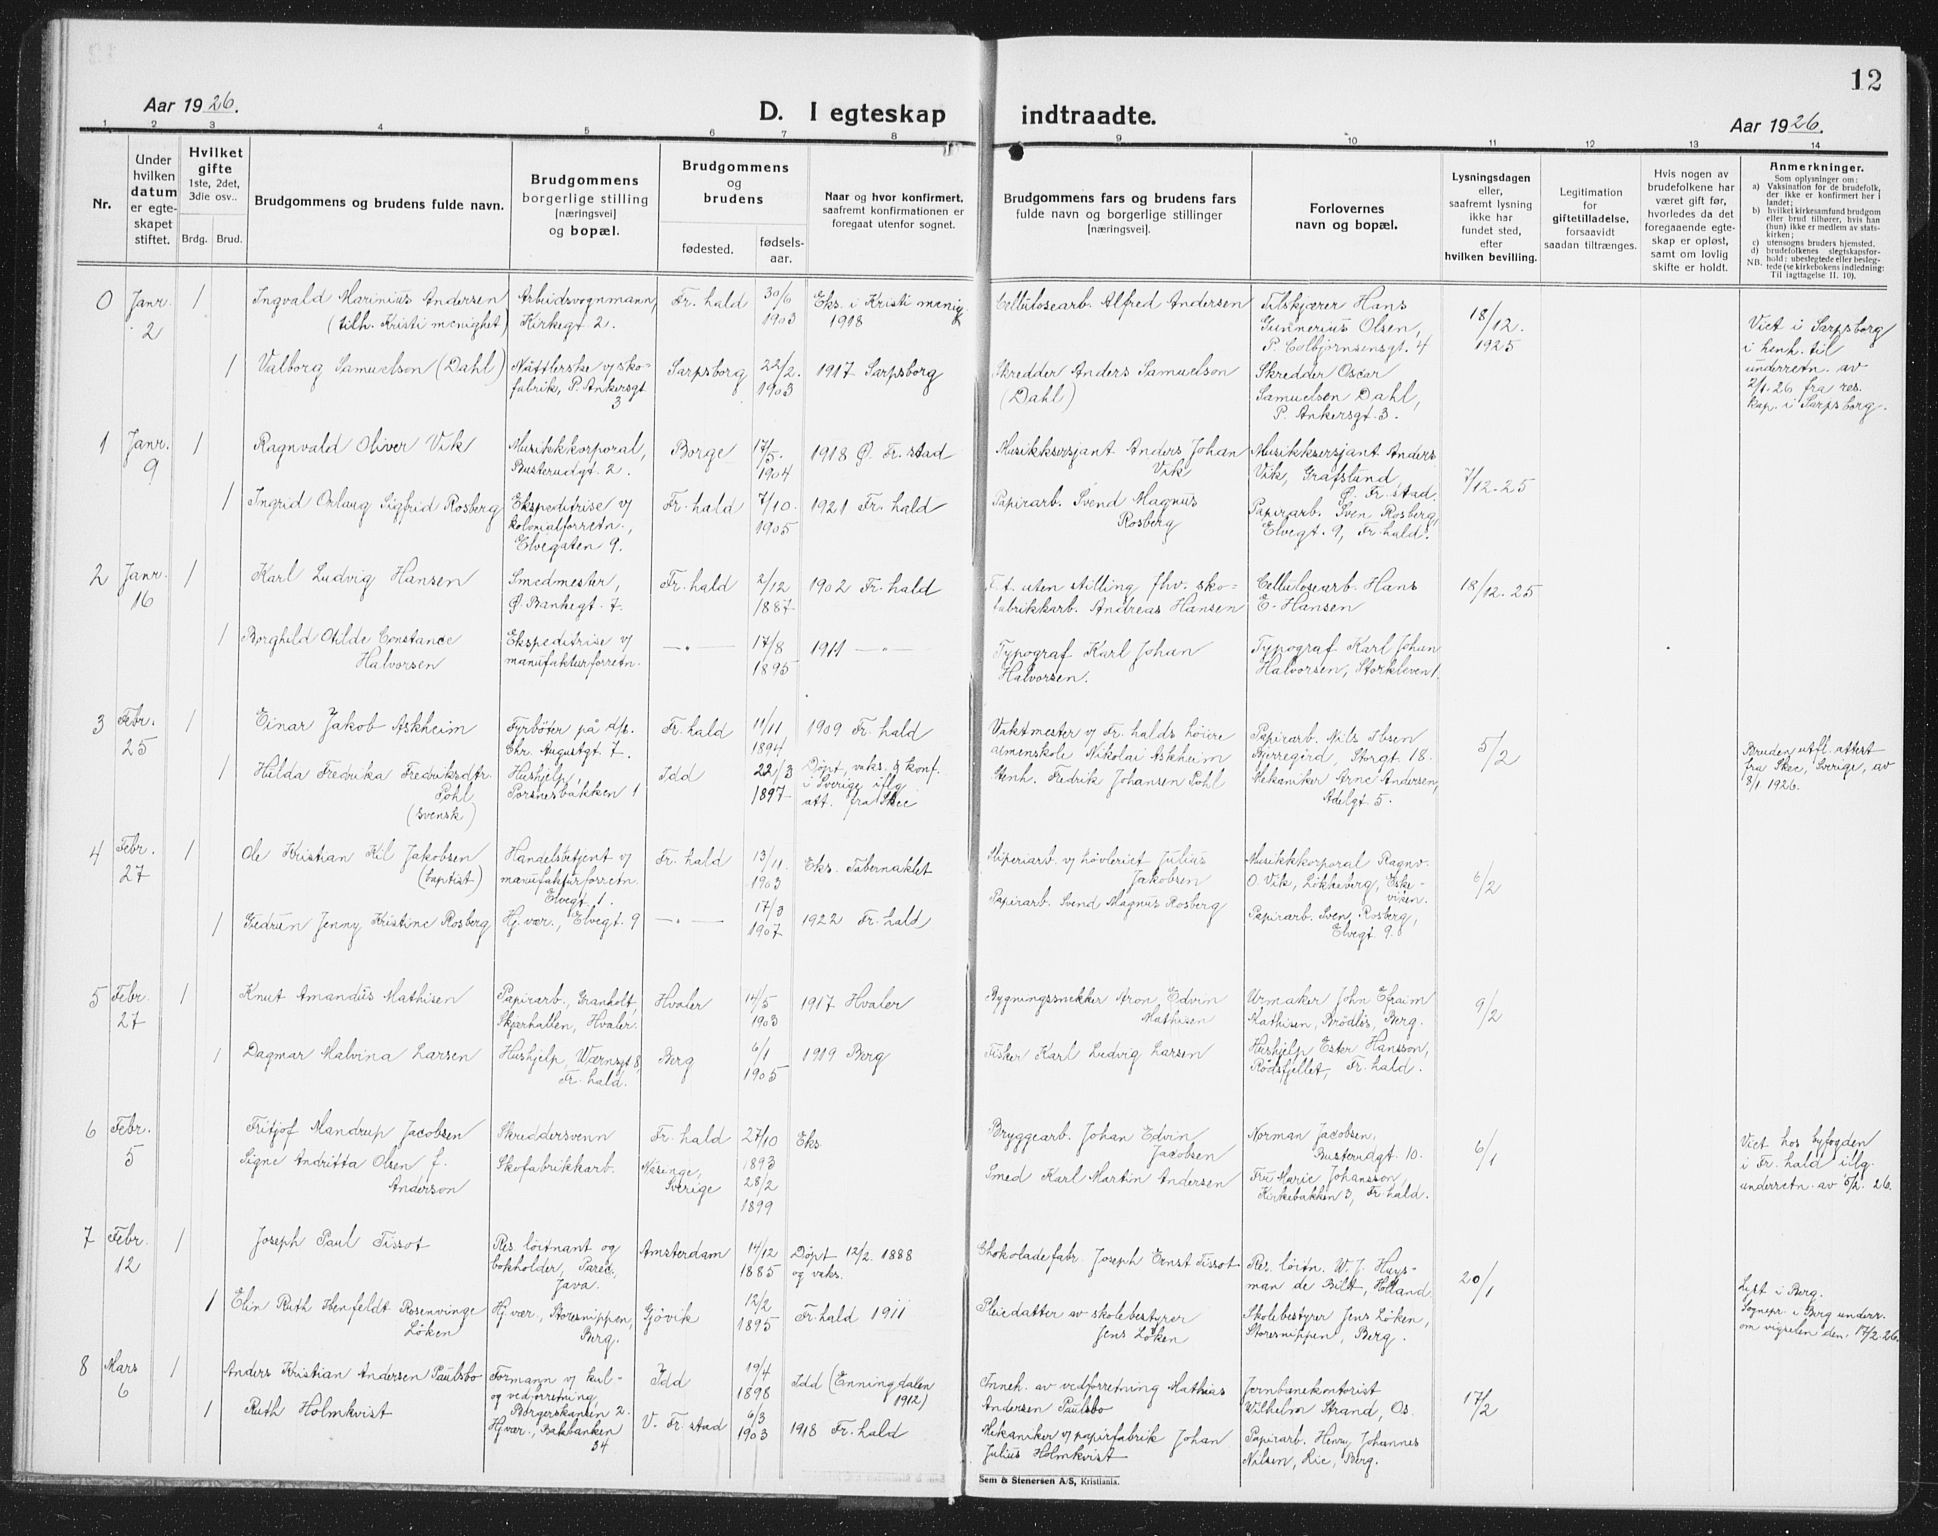 12
Aar 1926.
D. I egteskap indtraadte.
Aar 1926.
1 2 3 4 5 6 7 8 9 10 11 12 13 14
Nr.
Under
hvilken
datum
er egte-
skapet
stiftet.
Hvilket
gifte
1ste, 2det,
3die osv..
Brdg. Brud.
Brudgommens og brudens fulde navn.
Brudgommens
borgerlige stilling
[næringsvei]
og bopæl.
Brudgommens
og
brudens
fødested.
fødsels-
aar.
Naar og hvor konfirmert,
saafremt konfirmationen er
foregaat utenfor sognet.
Brudgommens fars og brudens fars
fulde navn og borgerlige stillinger
[næringsvei].
Forlovernes
navn og bopæl.
Lysningsdagen
eller,
saafremt lysning
ikke har
fundet sted,
efter
hvilken bevilling.
Legitimation
for
giftetilladelse,
forsaavidt
saadan tiltrænges.
Hvis nogen av
brudefolkene har
været gift før,
hvorledes da det
foregaaende egte-
skap er opløst,
samt om lovlig
skifte er holdt.
Anmerkninger.
Som oplysninger om:
a) Vaksination for de brudefolk,
der ikke er konfirmert her i
landet;
b) hvilket kirkesamfund brudgom
eller brud tilhører, hvis han
(hun) ikke er medlem av stats-
kirken;
c) utensogns bruders hjemsted.
d) brudefolkenes slegtskapsfor-
hold: ubeslegtede eller besleg-
NB. tede (se kirkebokens indledning:
Til iagttagelse II. 10).
0 Janr. 2 1 Ingvald Marinius Andersen
(tilh. Kristi menighet)
Arbeidsvognmann,
Kirkegt 2.
Fr. hald
30/6
1903
Eks. i Kristi menig.
1918
Cellulosearb. Alfred Andersen
Tilskjærer Hans
Gunnerius Olsen,
P. Colbjørnsensgt. 4
18/12.
1925
Viet i Sarpsborg
i henh. til
underretn. av
2/1.26 fra res.
kap. i Sarpsborg.
1 Valborg Samuelson (Dahl)
Nåttlerske v/ sko-
fabrik, P. Ankersgt
3
Sarpsborg
22/2.
1903
1917 Sarpsborg
Skredder Anders Samuelson
(Dahl)
Skredder Oscar
Samuelsen Dahl,
P. Ankersgt. 3.
1 Janr. 9 1 Ragnvald Oliver Vik
Musikkkorporal,
Busterudgt. 2.
Borge
17/5.
1904
1918 Ø. Fr. stad
Musikksersjant Anders Johan
Vik
Musikksersjant Anders
Vik, Grafslund,
Ø. Fr. stad.
7/12.25
1 Ingrid Orlaug Sigfrid Rosberg
Ekspeditrise v/
kolonialforretn.,
Elvegaten 9.
Fr. hald
7/10.
1905
1921 Fr. hald
Papirarb. Svend Magnus
Rosberg
Papirarb. Sven Rosberg,
Elvegt. 9, Fr. hald.
2 Janr. 16 1 Karl Ludvig Hansen
Smedmester,
Ø. Bankegt. 7.
Fr. hald
2/12
1887.
1902 Fr. hald
F.t. uten stilling fhv. sko-
fabrikkarb. Andreas Hansen
Cellulosearb. Hans
E. Hansen
18/12.25
1 Borghild Otilde Constance
Halvorsen
Ekspeditrise v/
manufakturforretn.
— " —
17/8
1895
1911 — " —
Typograf Karl Johan
Halvorsen.
Typograf Karl Johan
Halvorsen, Storkleven 1.
3 Febr. 25 1 Einar Jakob Askheim
Fyrbøter på d/s.
Chr. Augustgt. 7.
Fr. hald
11/11
1894
1909 Fr. hald
Vaktmester v/ Fr. halds høiere
almenskole Nikolai Askheim
Papirarb. Nils Ibsen
Bjerregård, Storgt. 18.
5/2
Bruden utfl. attest
fra Skee, Sverige, av
8/1 1926.
1 Hilda Fredrika Fredriksdtr.
Pohl
(svensk)
Hushjelp,
Porsnesbakken 1
Idd
22/3
1897
Døpt, vaks. & konf.
i Sverige iflg.
att. fra Skee
Stenh. Fredrik Johansen Pohl
Mekaniker Arne Andersen,
Adelgt 5.
4 Febr. 27 1 Ole Kristian Kil Jakobsen
(baptist)
Handelsbetjent v/
manufakturforretn.
Elvegt. 1.
Fr. hald
13/11.
1903
Eks. Tabernaklet
Skiperiarb. v/ høvleriet Julius
Jakobsen
Musikkkorporal Ragnv.
O. Vik, Løkkeberg, Eske-
viken.
6/2
1 Gudrun Jenny Kristine Rosberg
Hj. vær., Elvegt. 9
— " —
17/3
1907
1922 Fr. hald
Papirarb. Svend Magnus Rosberg
Papirarb. Sven Rosberg,
Elvegt. 9.
5 Febr. 27 1 Knut Amandus Mathisen
Papirarb., Granholt,
Skjærhallen, Hvaler.
Hvaler
14/5
1903
1917 Hvaler
Bygningssnekker Aron Edvin
Mathisen
Urmaker John Efraim
Mathisen, Brödløs, Berg.
9/2
1 Dagmar Malvina Larsen
Hushjelp, Værnsgt 8,
Fr. hald.
Berg
6/1
1905
1919 Berg
Fisker Karl Ludvig Larsen
Hushjelp Ester Hansson,
Rødsfjellet, Fr. hald.
6 Febr. 5 Fritjof Mandrup Jacobsen
Skreddersvenn
Fr. hald
27/10
1893
Eks.
Bryggearb. Johan Edvin
Jacobsen
Norman Jacobsen,
Busterudgt. 10.
6/1
Viet hos byfogden
i Fr. hald iflg.
underretn. av 5/2. 26.
Signe Andritta Olsen f.
Anderson
Skofabrikkarb.
Näsinge,
Sverige
28/2
1899
Smed Karl Martin Andersen
Fru Marie Johansson,
Kirkebakken 3, Fr. hald.
7 Febr. 12 1 Joseph Paul Tissot
Res. løitnant og
bokholder, Paree,
Java.
Amsterdam
14/12
1885
Døpt 12/2. 1888
og vaks.
Chokoladefabr. Joseph Ernst Tissot
Res. løitn. W. J. Huys-
man de Bilt, Holland
20/1
Lyst i Berg.
Sognepr. i Berg underr.
om vigselen den 17/2.26.
1 Elin Ruth Ibenfeldt Rosenvinge
Løken
Hj. vær, Storesnippen,
Berg.
Gjøvik
12/2
1895
Fr. hald 1911
Pleiedatter av skolebestyrer
Jens Løken
Skolebestyrer Jens Løken,
Storesnippen, Berg.
8 Mars 6 1 Anders Kristian Andersen Paulsbo
Formann v/ kul-
og vedforretning,
Borgerskansen 2.
Idd
19/4
1898
Idd (Enningdalen
1912)
Inneh. av vedforretning Mathias
Andersen Paulsbo
Jernbanekontorist
Wilhelm Strand, Os.
17/2
1 Ruth Holmkvist
Hj. vær., Bakbanken
34
V. Fr. stad
6/3
1903
1918 Fr. hald
Mekaniker v/ papirfabrik Johan
Julius Holmkvist
Papirarb. Henry Johannes
Nilsen, Lie, Berg.
Sem & Stenersen A/S, Kristiania.